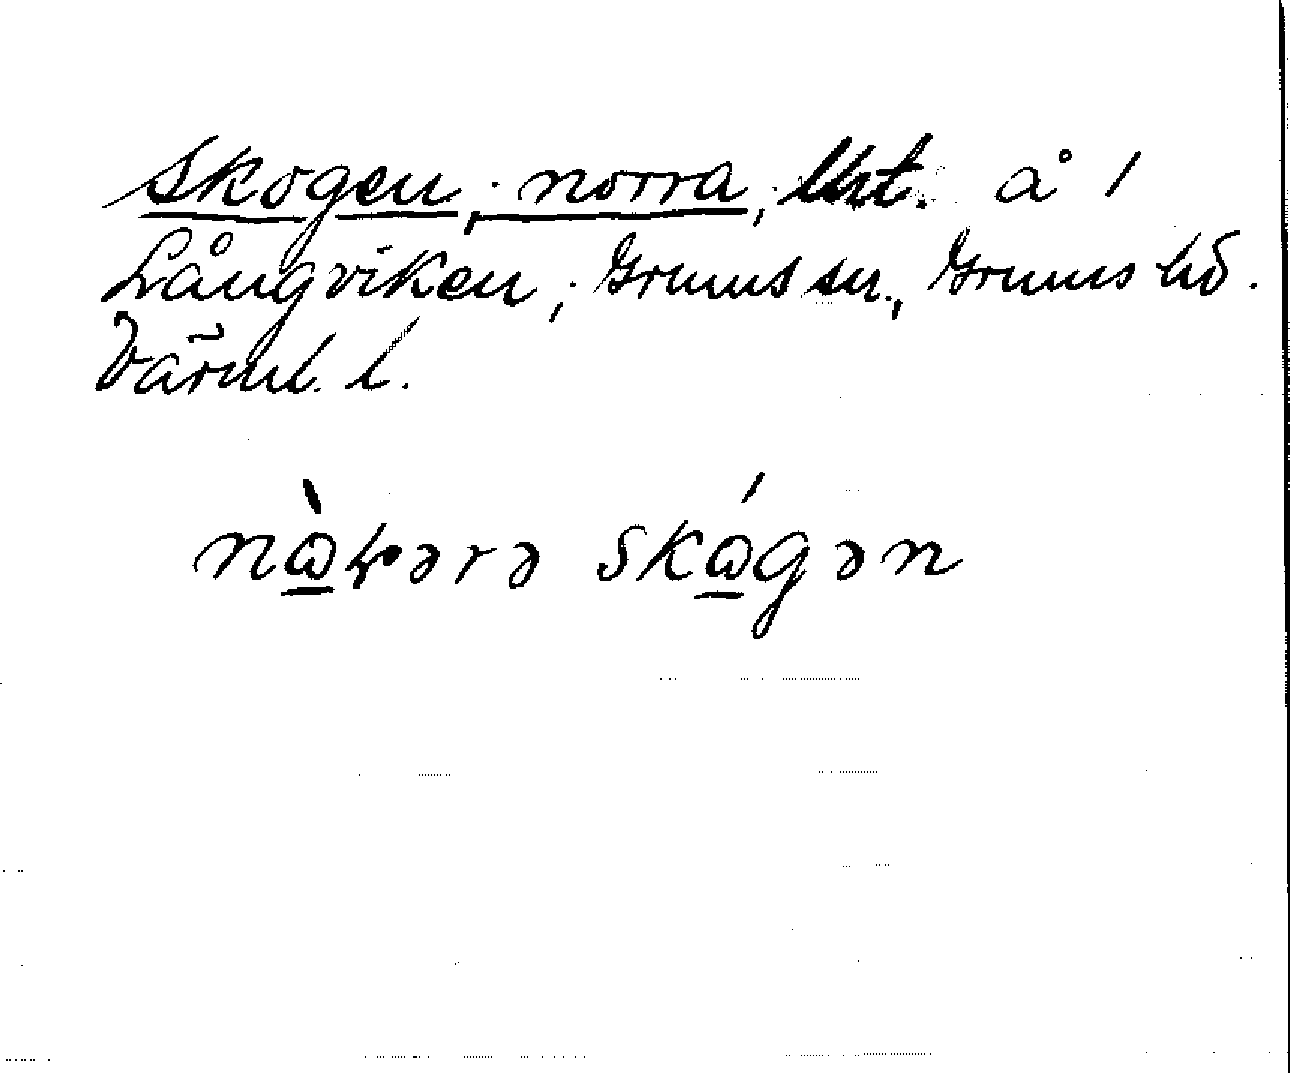 Skogen, norra, lht. å 1
Långviken, Grums sn., Grums hd.
Värml. l.
skógən